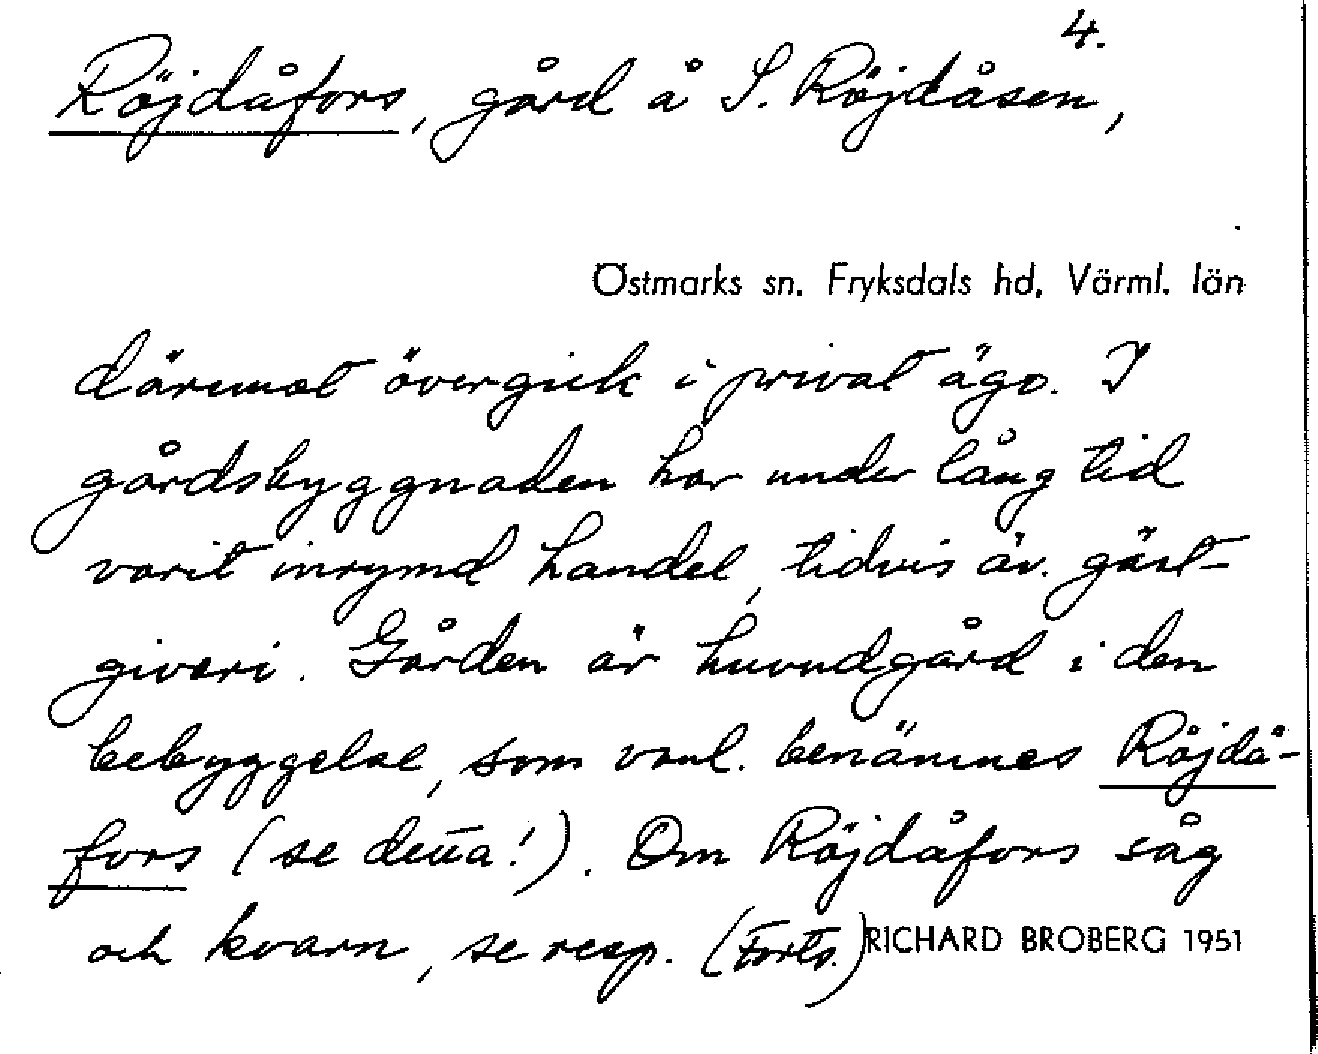 4.
Röjdåfors, gård å S. Röjdåsen,
Östmarks sn. Fryksdals hd, Värml. län
däremot övergick i privat ägo. I
gårdsbyggnaden har under lång tid
varit inrymd handel, tidvis äv. gäst-
giveri. Gården är huvudgård i den
bebyggelse, som vanl. benämnes Röjdå-
fors (se detta!). Om Röjdåfors såg
och kvarn, se resp. (Forts.)
RICHARD BROBERG 1951